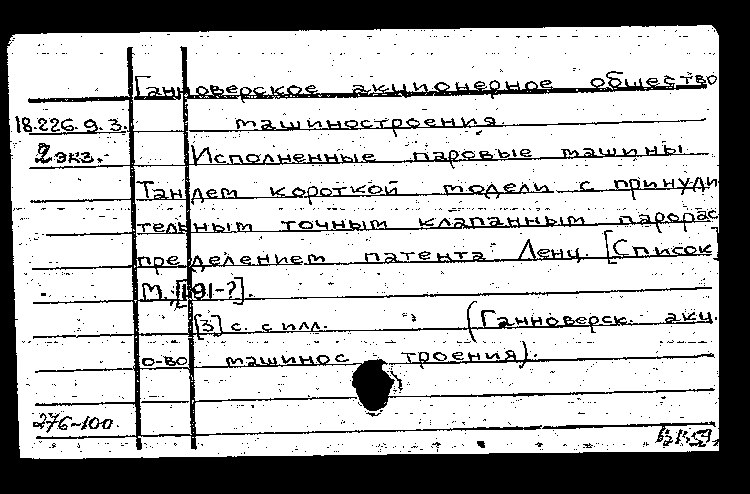 Ганноверское акционерное общество
18.226.9.3. машиностроения
2 экз. Исполненные паровые машины
Тандем короткой модели с принуди
тельным точным клапанным парорас
пределением патента Ленц. [Список]
М., [191-?].
[3] с. с илл. (Ганноверск. акц.
о-во машиностроения).
276-100